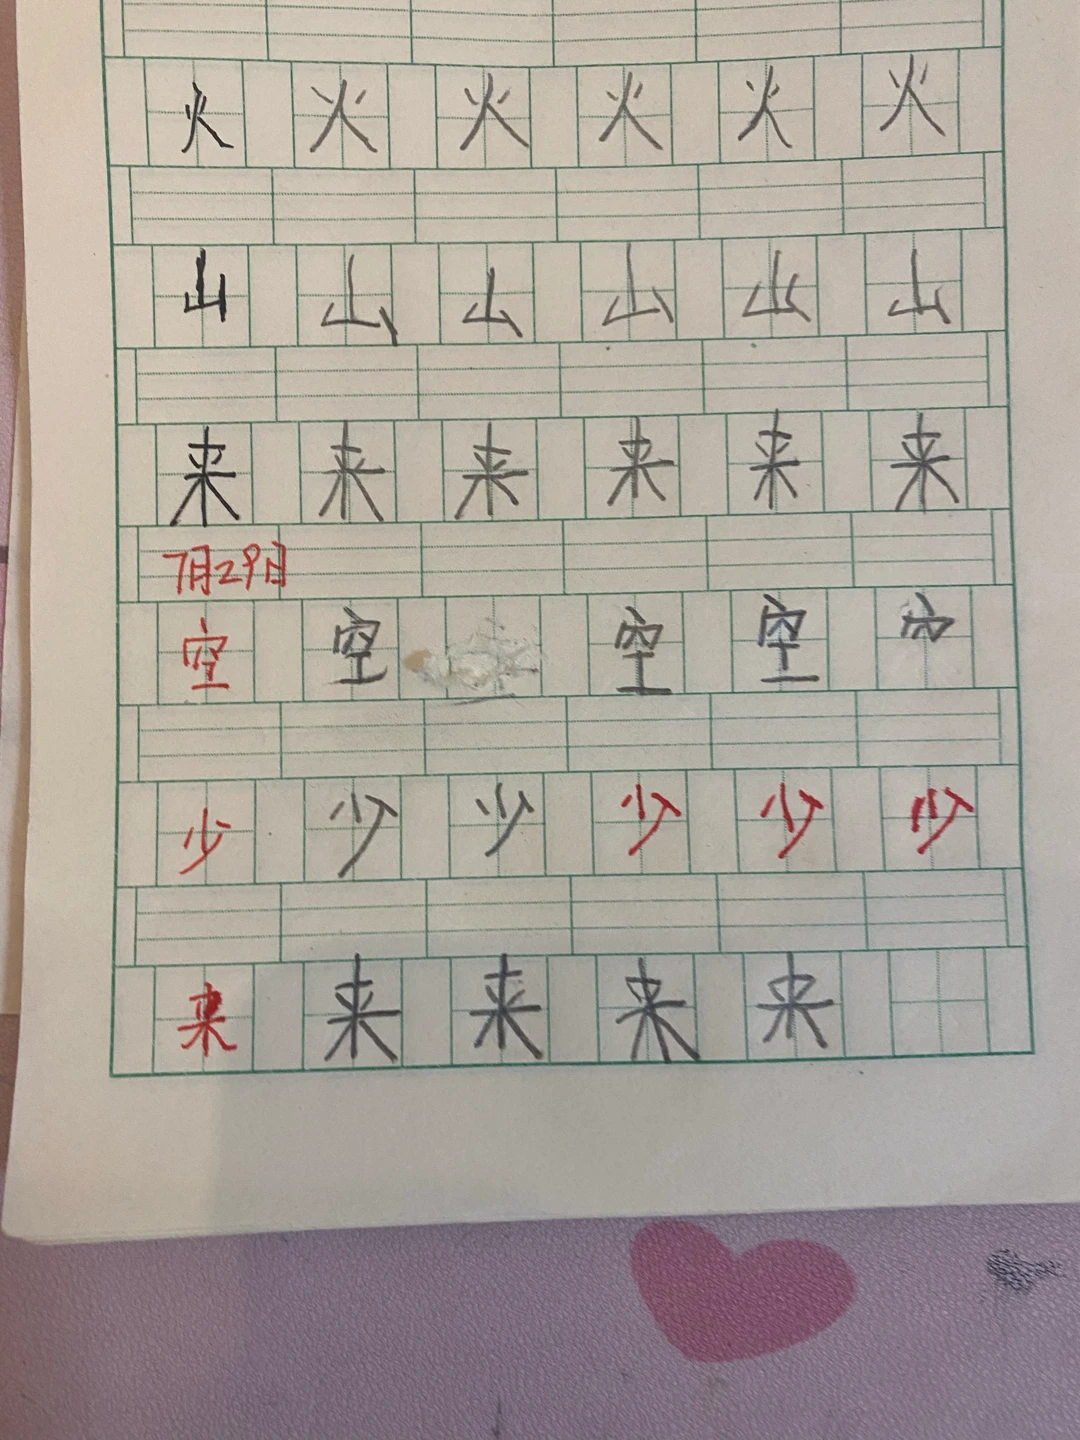 火 火 火 火 火 火
山 山 山 山 山 山
来 来 来 来 来 来
7月29日
空 空 空 空 穴
少 少 少 少 少 少
来 来 来 来 来